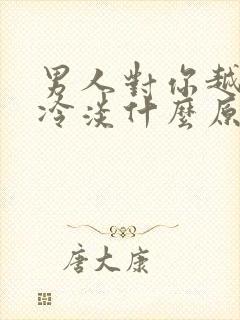 男人對你越
冷淡什麼原
唐大康